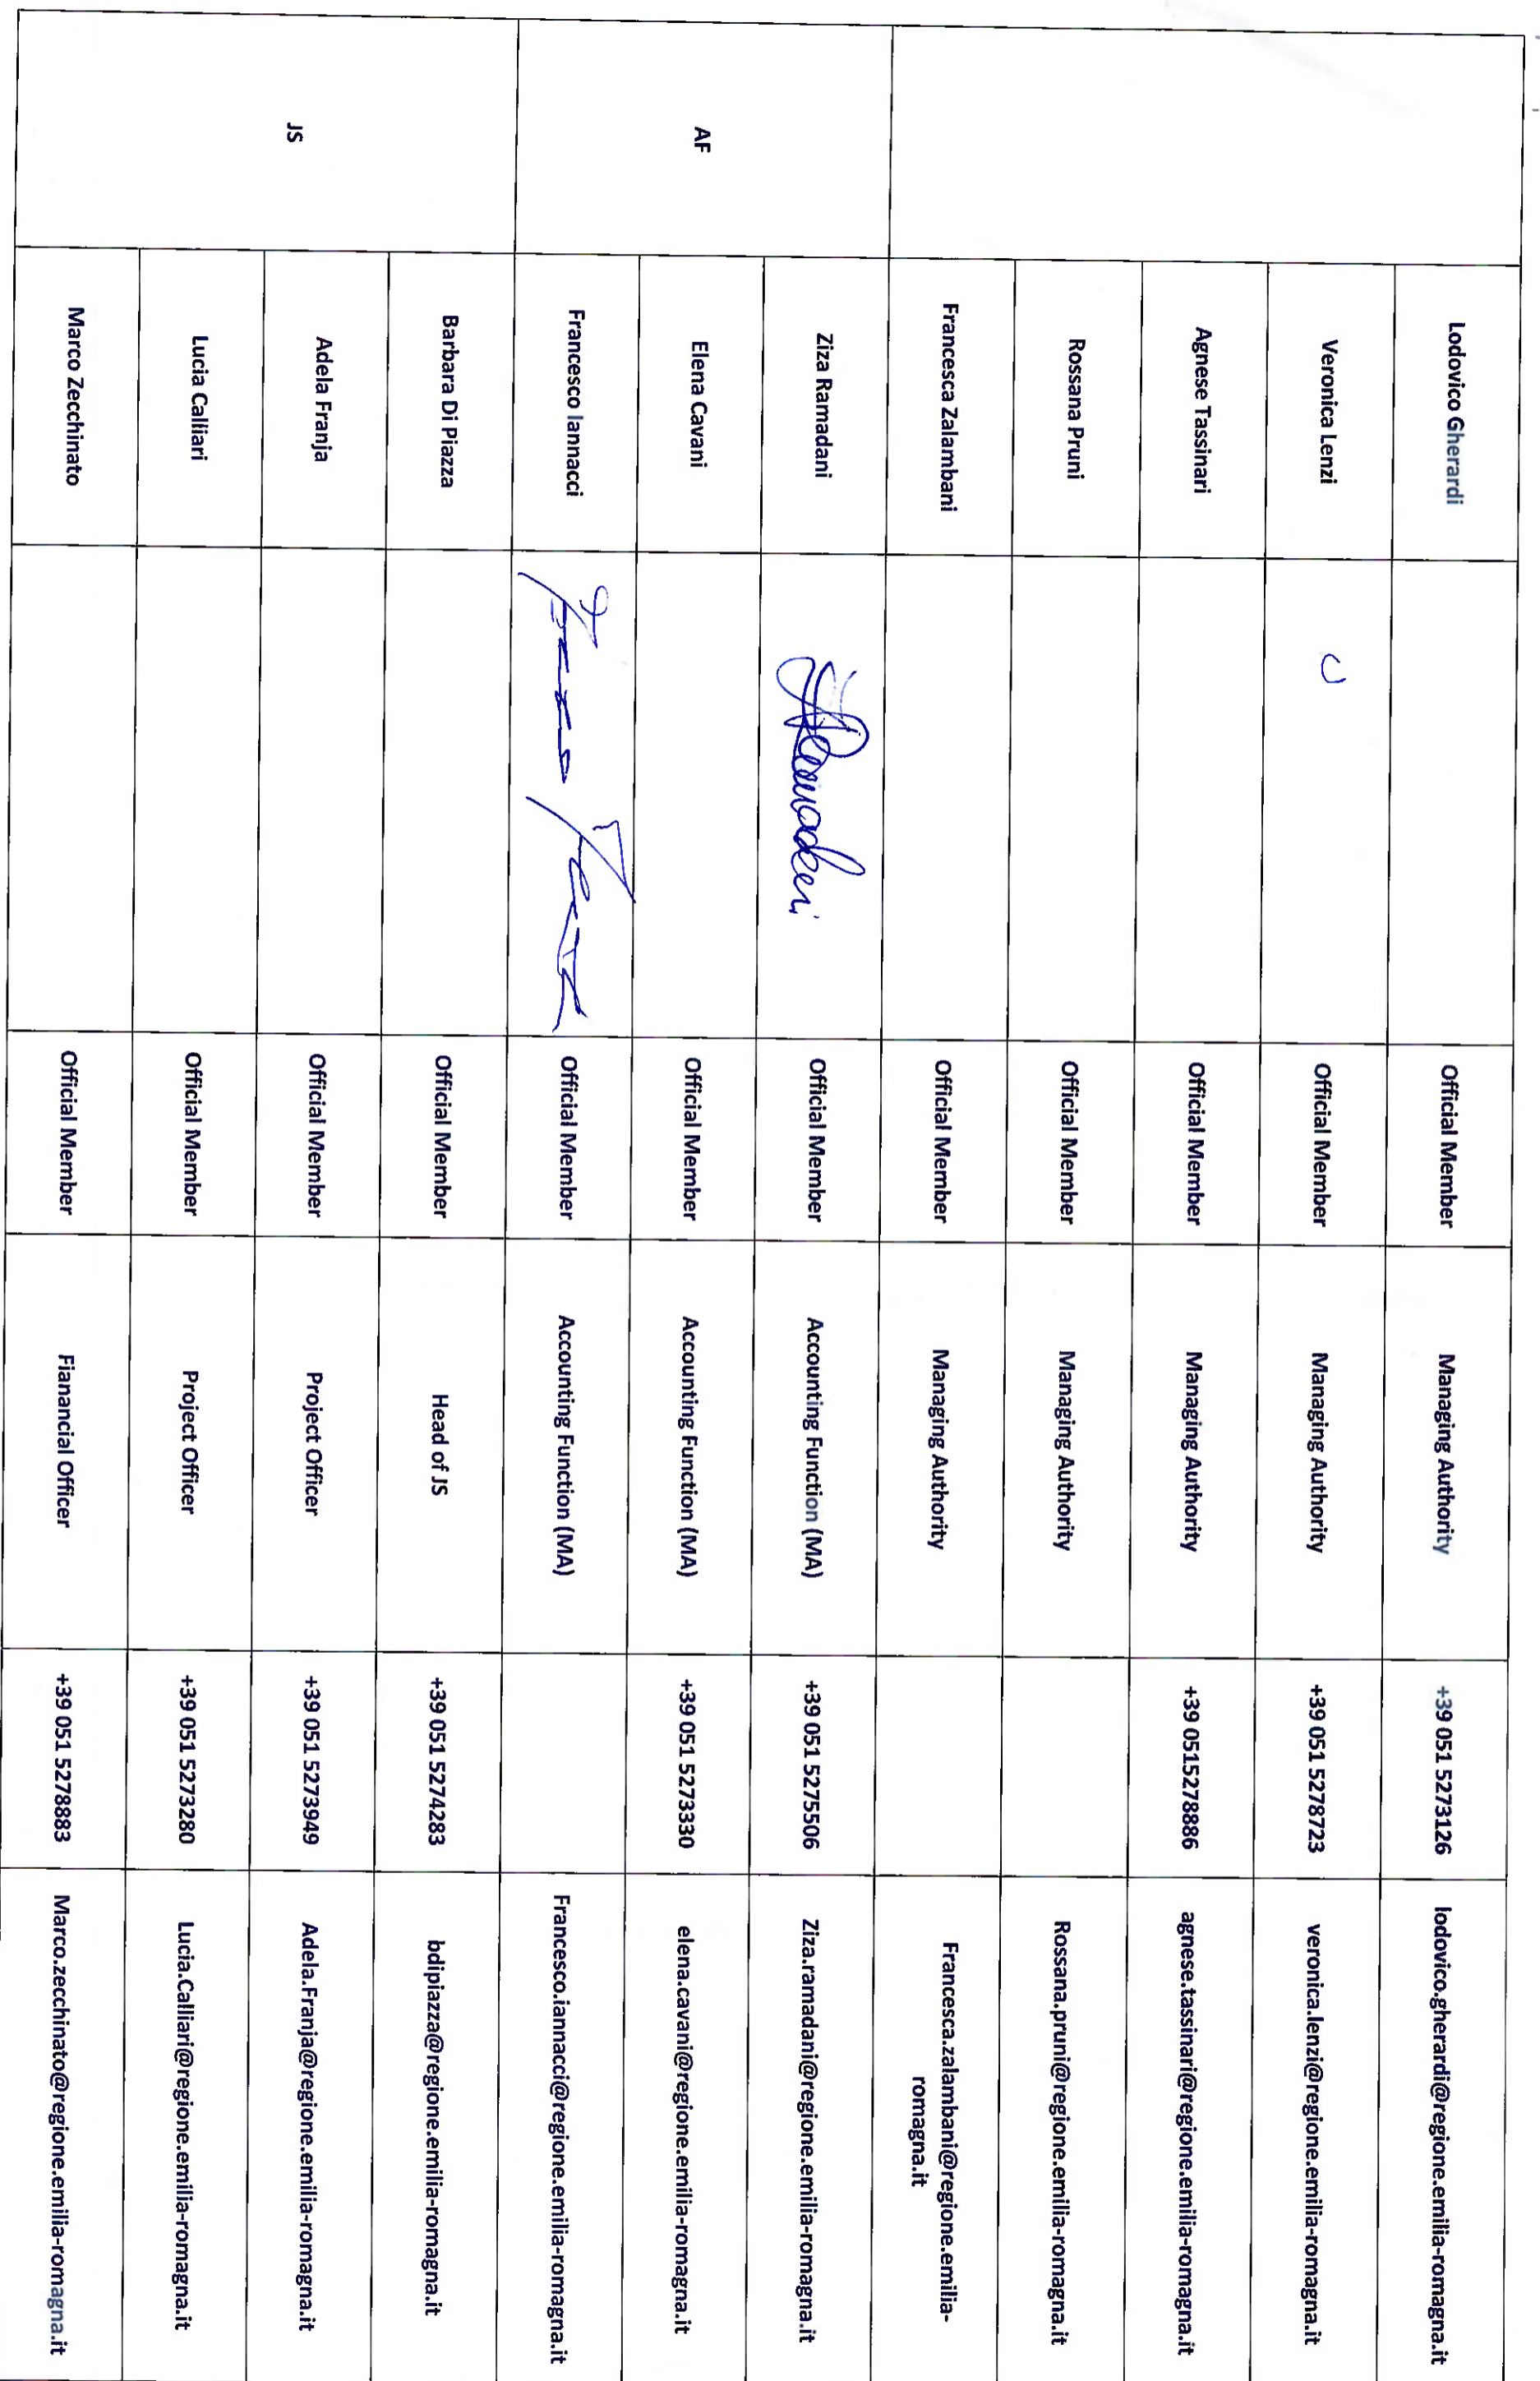 Lodovico Gherardi Official Member Managing Authority +39 051 5273126 lodovico.gherardi@regione.emilia-romagna.it
Veronica Lenzi Official Member Managing Authority +39 051 5278723 veronica.lenzi@regione.emilia-romagna.it
Agnese Tassinari Official Member Managing Authority +39 0515278886 agnese.tassinari@regione.emilia-romagna.it
Rossana Pruni Official Member Managing Authority Rossana.pruni@regione.emilia-romagna.it
Francesca Zalambani Official Member Managing Authority Francesca.zalambani@regione.emilia-
romagna.it
AF
Ziza Ramadani Official Member Accounting Function (MA) +39 051 5275506 Ziza.ramadani@regione.emilia-romagna.it
Elena Cavani Official Member Accounting Function (MA) +39 051 5273330 elena.cavani@regione.emilia-romagna.it
Francesco Iannacci Official Member Accounting Function (MA) Francesco.iannacci@regione.emilia-romagna.it
JS
Barbara Di Piazza Official Member Head of JS +39 051 5274283 bdipiazza@regione.emilia-romagna.it
Adela Franja Official Member Project Officer +39 051 5273949 Adela.Franja@regione.emilia-romagna.it
Lucia Calliari Official Member Project Officer +39 051 5273280 Lucia.Calliari@regione.emilia-romagna.it
Marco Zecchinato Official Member Fianancial Officer +39 051 5278883 Marco.zecchinato@regione.emilia-romagna.it